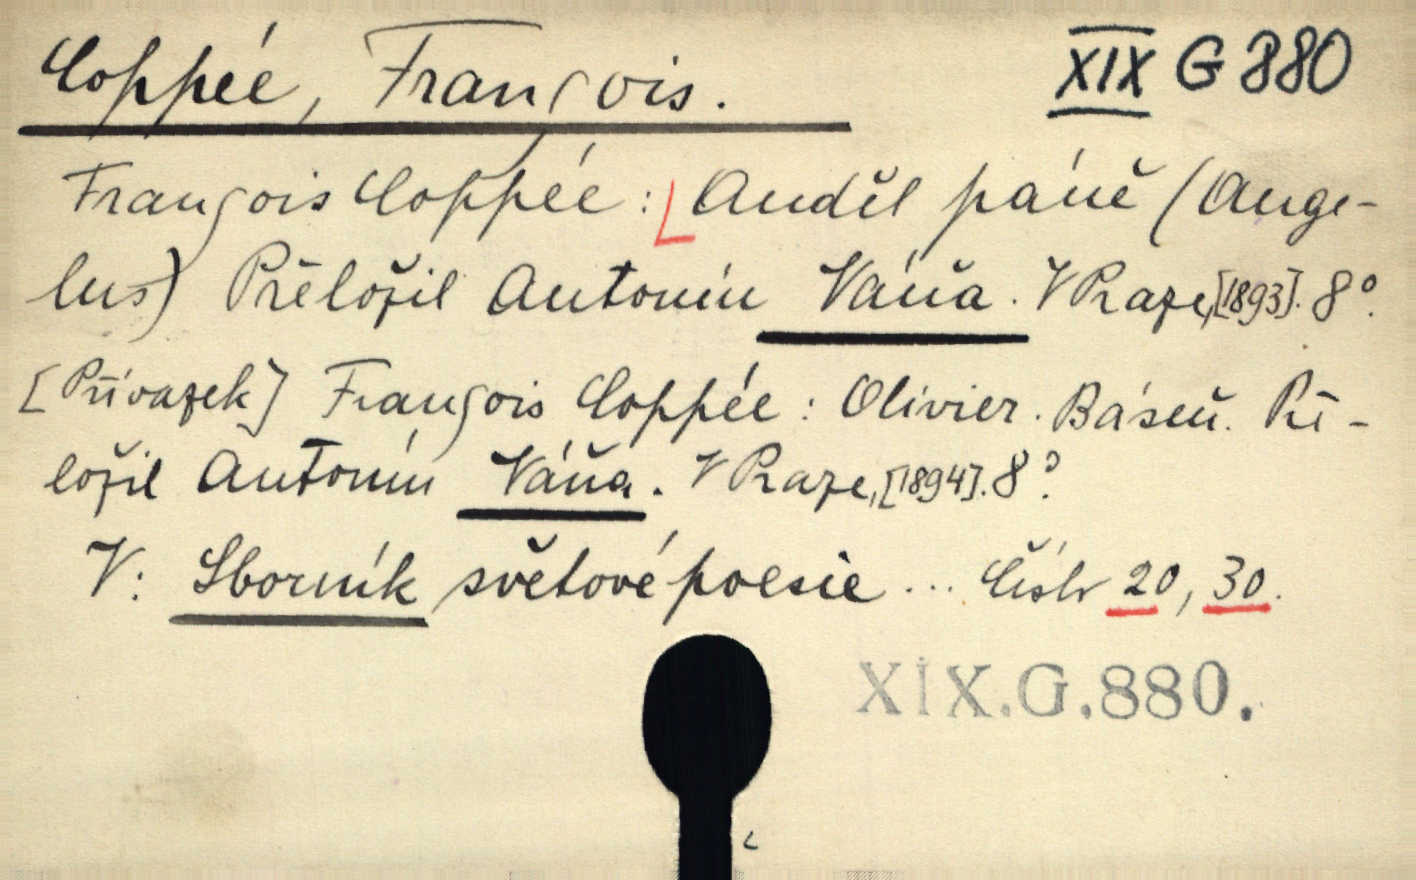 Coppée, François. XIX G 880
François Coppée: Anděl páně (Ange-
lus) Přeložil Antonín Váňa. V Praze, [1893]. 8°.
[Přívazek] François Coppée: Olivier. Báseň. Pře-
ložil Antonín Váňa. V Praze, [1894]. 8°.
V: Sborník světové poesie ... Číslo 20, 30.
XIX.G.880.